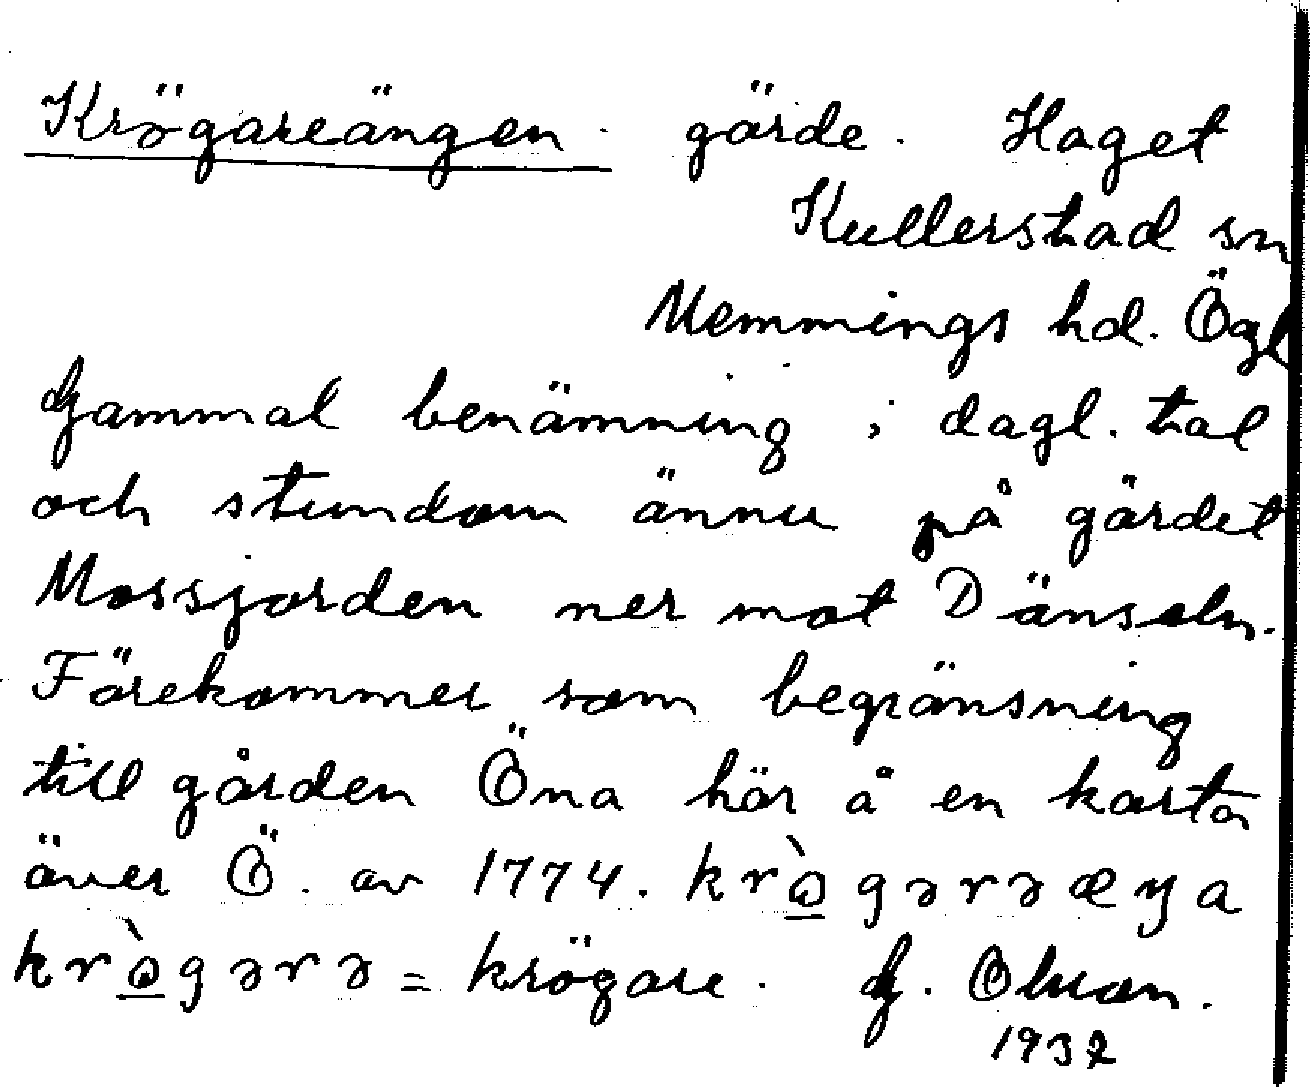 Krögareängen. gärde. Haget
Kullerstad sn
Memmings hd. Ögl
Gammal benämning i dagl. tal
och stundom ännu på gärdet
Mossjorden ner mot Dänseln.
Förekommer som begränsning
till gården Öna här å en karta
över Ö. av 1774. krò̲gərəæŋa
krò̲gərə = krögare. G.
1937